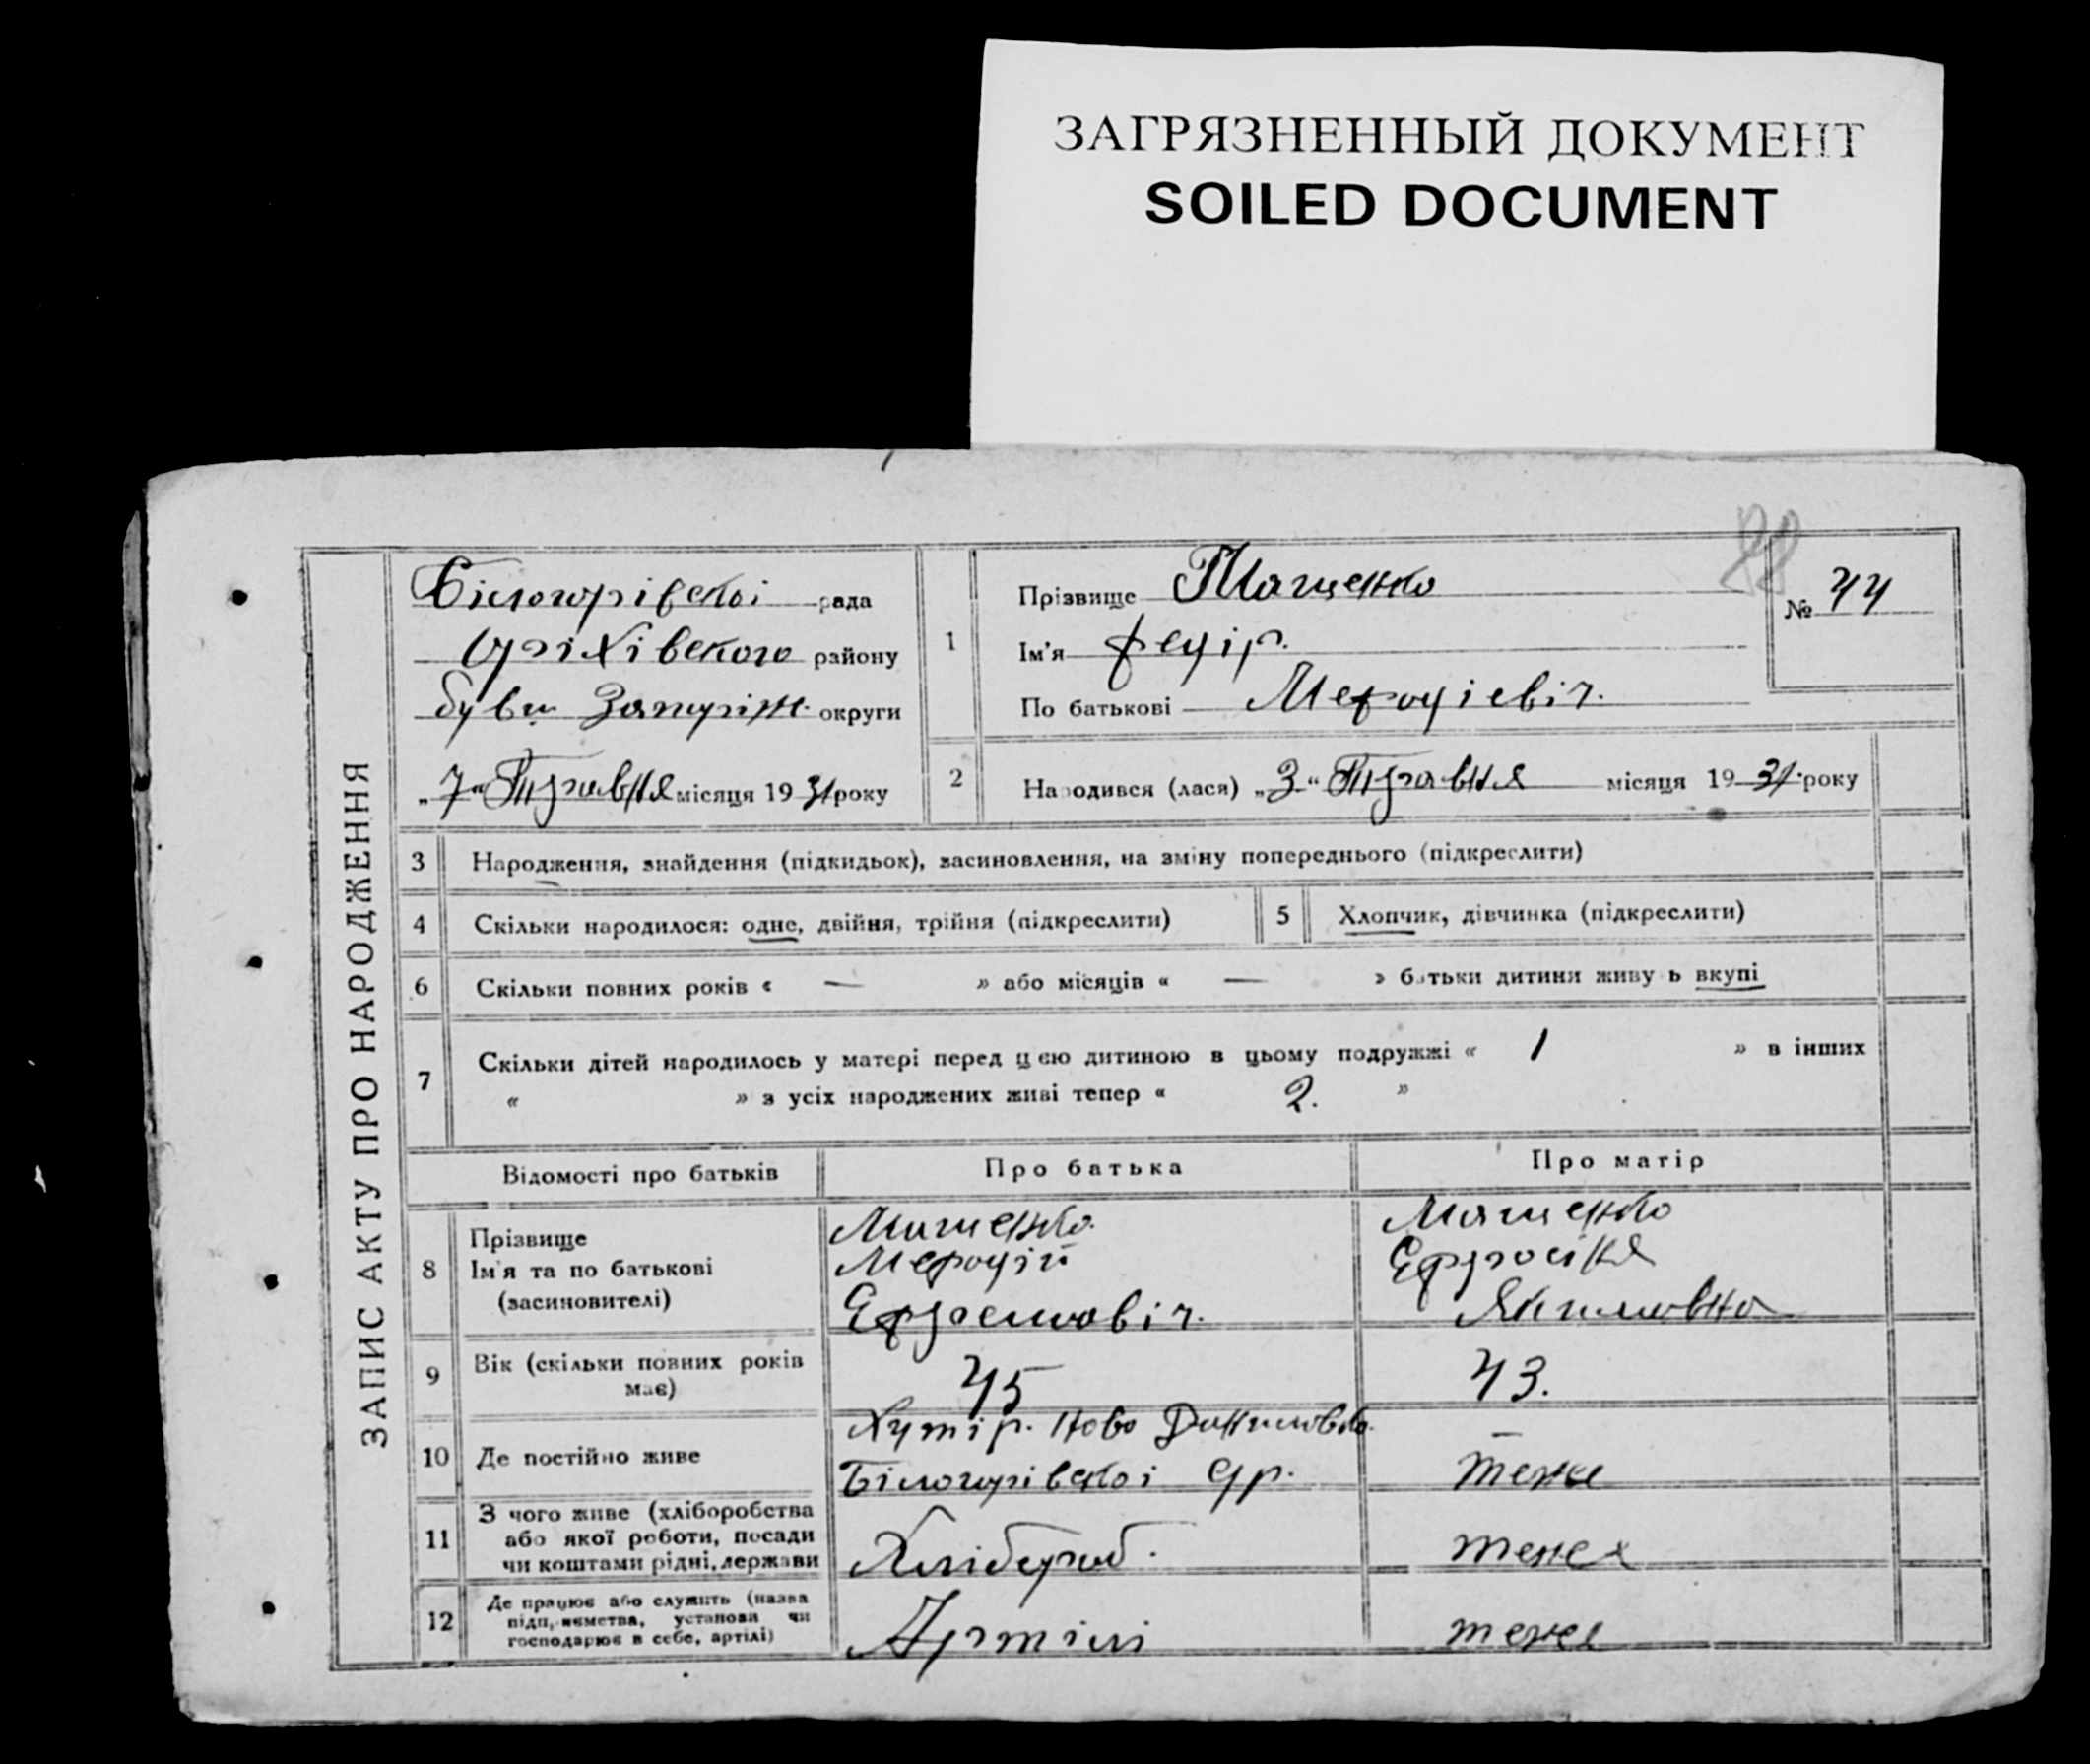 ЗАГРЯЗНЕННЫЙ ДОКУМЕНТ
SOILED DOCUMENT
88
ЗАПИС АКТУ ПРО НАРОДЖЕННЯ
Білогорівської рада
Оріхівського району
бувш Запоріж. округи
„7“ Травня місяця 1931 року
1
Прізвище Мащенко
Ім'я Федір.
По батькові Мефодіевіч.
№ 44
2
Народився (лася) „3“ Травня місяця 1931 року
3 Народження, знайдення (підкидьок), засиновлення, на зміну попереднього (підкреслити)
4 Скільки народилося: одне, двійня, трійня (підкреслити)
5 Хлопчик, дівчинка (підкреслити)
6 Скільки повних років « — » або місяців « — » батьки дитини живуть вкупі
7 Скільки дітей народилось у матері перед цією дитиною в цьому подружжі « 1 » в інших
« » з усіх народжених живі тепер « 2. »
Відомості про батьків Про батька Про матір
8 Прізвище
Ім'я та по батькові
(засиновителі)
Мащенко
Мефодій
Ефремовіч.
Мащенко
Ефросінія
Якимовна
9 Вік (скільки повних років має)
45
43.
10 Де постійно живе
Хутір. Ново Даниловка.
Білогорівської с/р.
теже
11 З чого живе (хліборобства
або якої роботи, посади
чи коштами рідні, держави
Хлібороб.
теже
12 Де працює або служить (назва
підприємства, установи чи
господарює в себе, артілі)
Артілі
теже